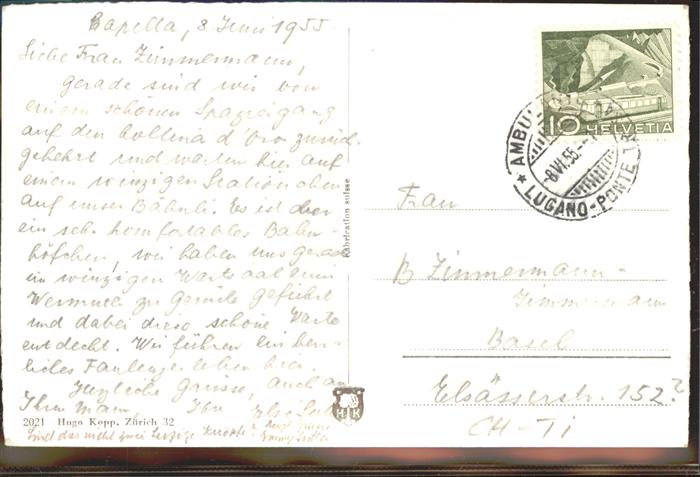 Capella, 8 Juni 1955
Liebe Frau Zimmermann,
gerade sind wir von
einem schönen Spaziergang
auf den Collina d'Oro zurück
gekehrt und warten hier auf
einem winzigen Stationchen
auf unser Bähnli. Es ist aber
ein sehr komfortables Bahn-
höfchen, wir haben uns gerade
im winzigen Wartesaal einen
Wermuth zu Gemüte geführt
und dabei diese schöne Karte
entdeckt. Wir führen ein herr-
liches Faulenzerleben hier.
Herzliche Grüsse, auch an
Ihren Mann, Ihre Elsi
Sind das nicht zwei herzige Knöpfe?
2021 Hugo Kopp, Zürich 32
Fabrication suisse
HK
10 HELVETIA
AMBULANT
8.VI.55
LUGANO-PONTE TRESA
Frau
B Zimmermann-
Zimmermann
Basel
Elsässerstr. 152?
CH-Ti